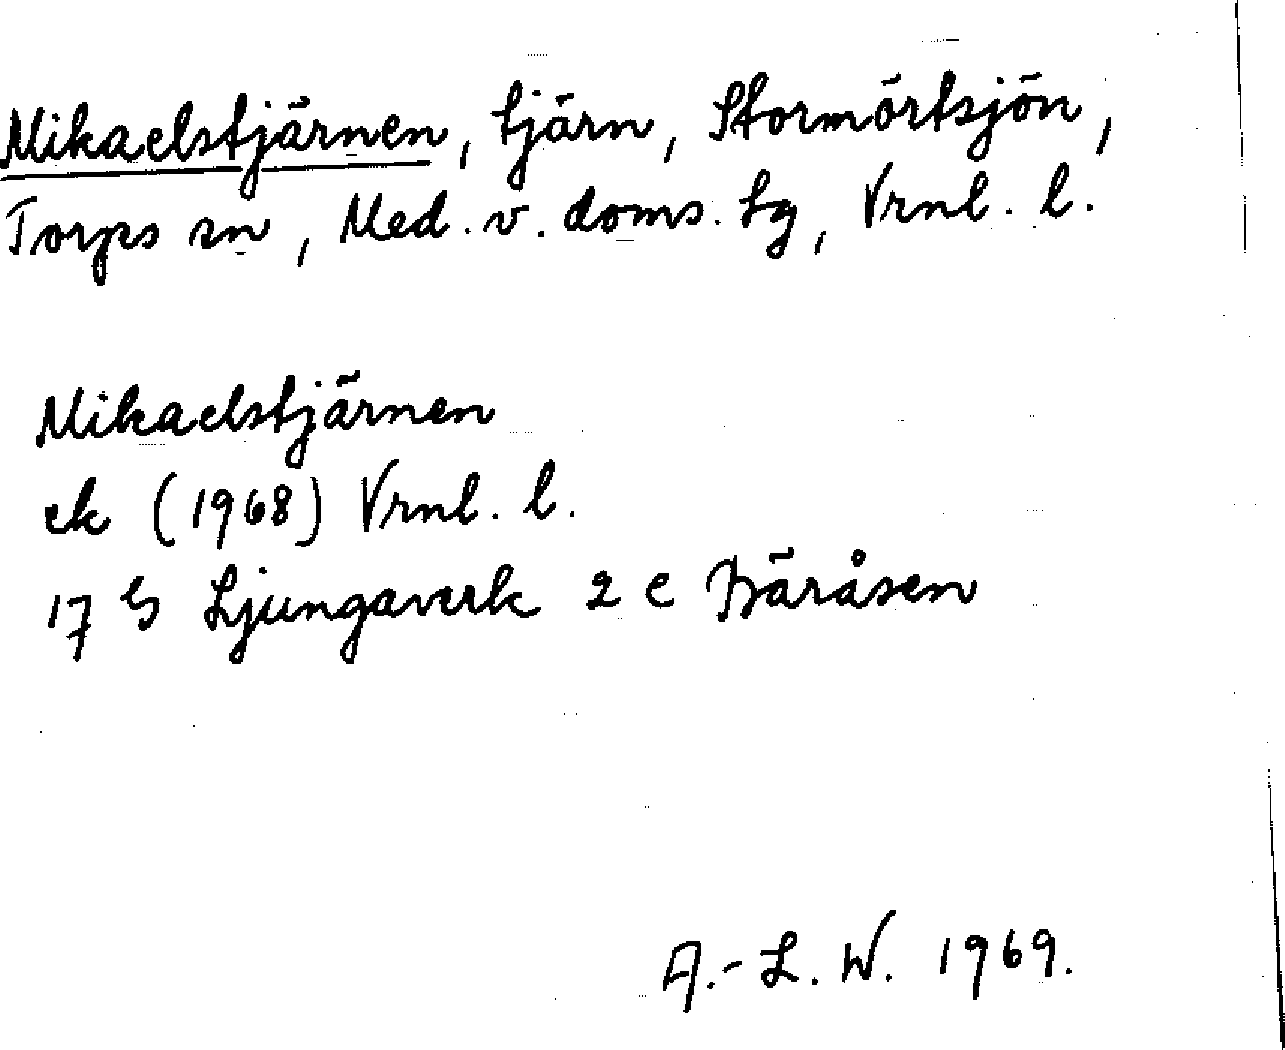 Mikaelstjärnen, tjärn, Stormörtsjön,
Torps sn, Med. v. doms. tg, Vrnl. l.
Mikaelstjärnen
ek (1968) Vrnl. l.
17 G Ljungaverk 2 e Bäråsen
A.-L. W. 1969.